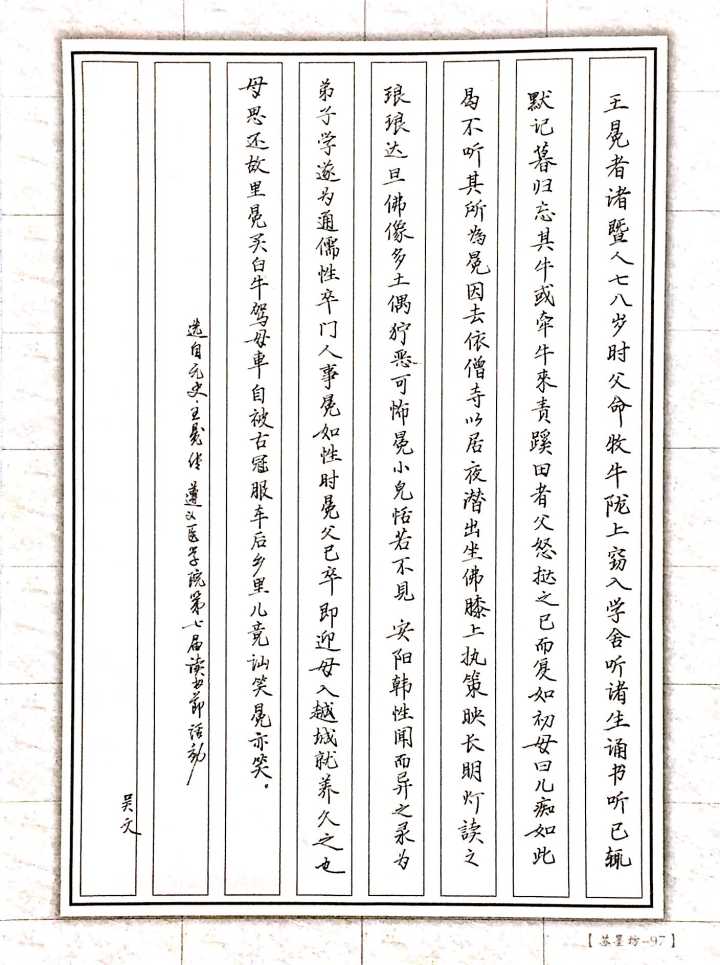 王冕者诸暨人七八岁时父命牧牛陇上窃入学舍听诸生诵书听已辄
默记暮归忘其牛或牵牛來责蹊田者父怒挞之已而复如初母曰儿痴如此
曷不听其所为冕因去依僧寺以居夜潜出坐佛膝上执策映长明灯读之
琅琅达旦佛像多土偶狞恶可怖冕小儿恬若不见 安阳韩性闻而异之录为
弟子学遂为通儒性卒门人事冕如性时冕父已卒即迎母入越城就养久之也
母思还故里冕买白牛驾母車自被古冠服车后乡里儿竞讪笑冕亦笑。
选自元史·王冕传 遵义医学院第七届读书节活动
吴文
【苏墨坊-97】